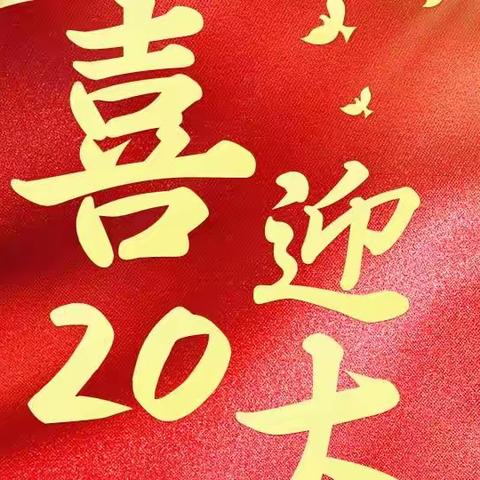 喜迎
20大